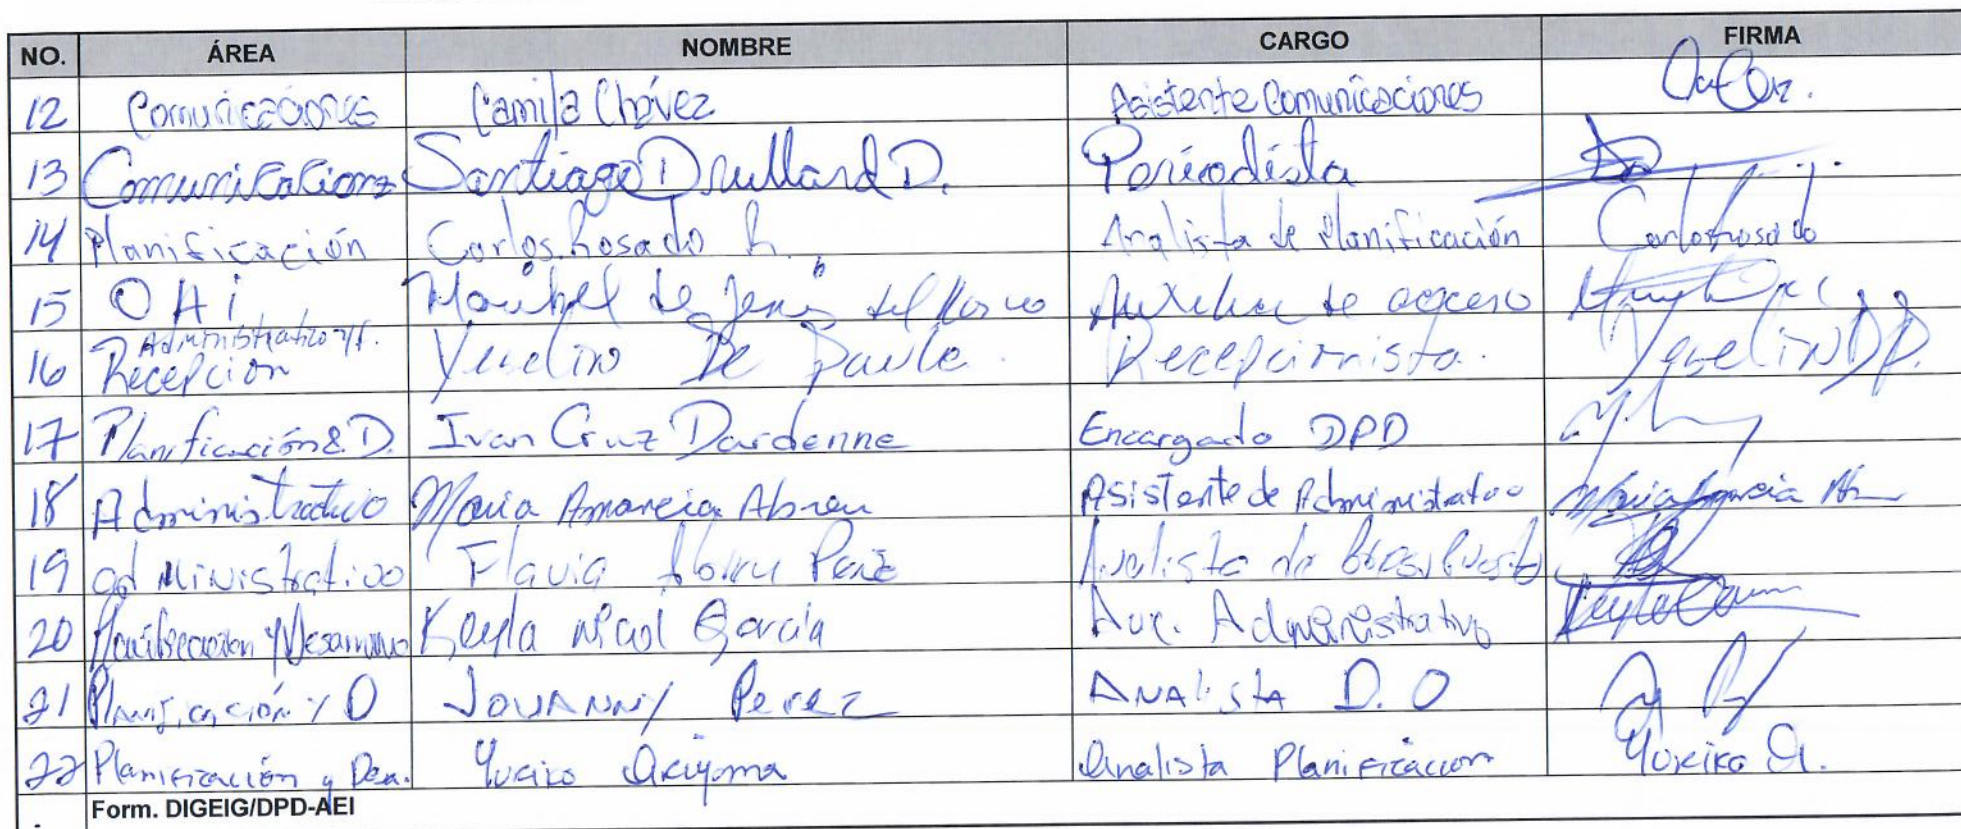 NO. ÁREA NOMBRE CARGO FIRMA
12 Comunicaciones Camila Chávez Asistente Comunicaciones
13 Comunicaciones Santiago Drullard D. Periodista
14 Planificación Carlos Rosado R. Analista de Planificación Carlos Rosado
15 OAI Maribel de Jesús del Rosario Auxiliar de acceso
Administrativo y f.
16 Recepción Yuselin De Paula. Recepcionista. Yuselin D P.
17 Planificación & D. Ivan Cruz Dardenne Encargado DPD
18 Administrativo Maria Amarcia Abreu Asistente de Administrativo Maria Amarcia Ab
19 administrativo Flavia Abreu Analista de
20 Planificacion y Desarrollo Keyla Nicol García Aux. Administrativo
21 Planificación y D Jovanny Perez Analista D.O
22 Planificación y Des. Yukiko Akiyama Analista Planificacion Yukiko A.
Form. DIGEIG/DPD-AEI